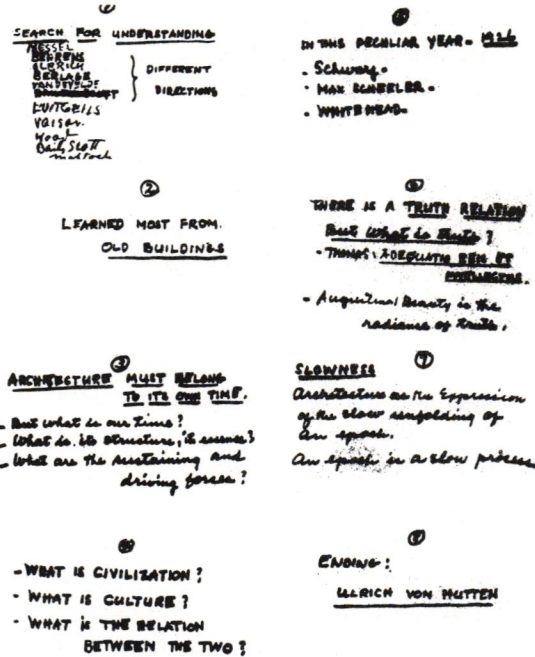 ①
SEARCH FOR UNDERSTANDING
MESSEL
BEHRENS
OLBRICH
BERLAGE
VANDEVELDE
DIFFERENT
DIRECTIONS
LUITGEILS
VOISAR.
Baily Scott
②
LEARNED MOST FROM.
OLD BUILDINGS
③
ARCHITECTURE MUST BELONG
TO ITS OWN TIME.
- But what is our time?
- What is its structure, its essence?
- What are the sustaining and
driving forses?
④
- WHAT IS CIVILIZATION?
- WHAT IS CULTURE?
- WHAT IS THE RELATION
BETWEEN THE TWO?
⑤
IN THIS PECULIAR YEAR- 1926
- Schwarz-
- MAX SCHEELER-
- WHITEHEAD-
⑥
THERE IS A TRUTH RELATION
But what is truth?
- THOMAS: ADEQUATIO REI ET
INTELLECTUS.
- Augustinus/Beauty is the
radiance of truth.
⑦
SLOWNESS
Architecture as the Expression
of the slow unfolding of
an epoch.
An epoch is a slow process
⑧
ENDING:
ULRICH VON HUTTEN